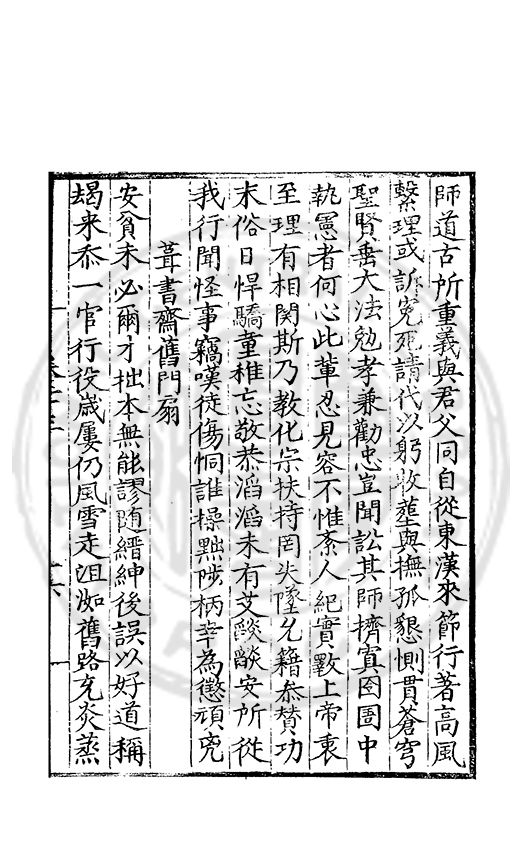 師道古所重義與君父同自從東漢來節行著高風
繫理或訴寃死請代以躬收塟與撫孤懇惻貫蒼穹
聖賢垂大法勉孝兼勸忠豈聞訟其師擠寘囹圄中
執憲者何心此輩忍見容不惟紊人紀實斁上帝衷
至理有相関斯乃教化宗扶持罔失墜允籍叅賛功
末俗日悍驕童稚忘敬恭滔滔未有艾燄燄安所從
我行聞怪事竊嘆徒傷恫誰操黜陟柄幸為懲頑兇
葺書齋舊門扇
安貧未必爾才拙本無能謬随縉紳後誤以好道稱
朅来忝一官行役歳屢仍風雪走沮洳舊路充炎蒸